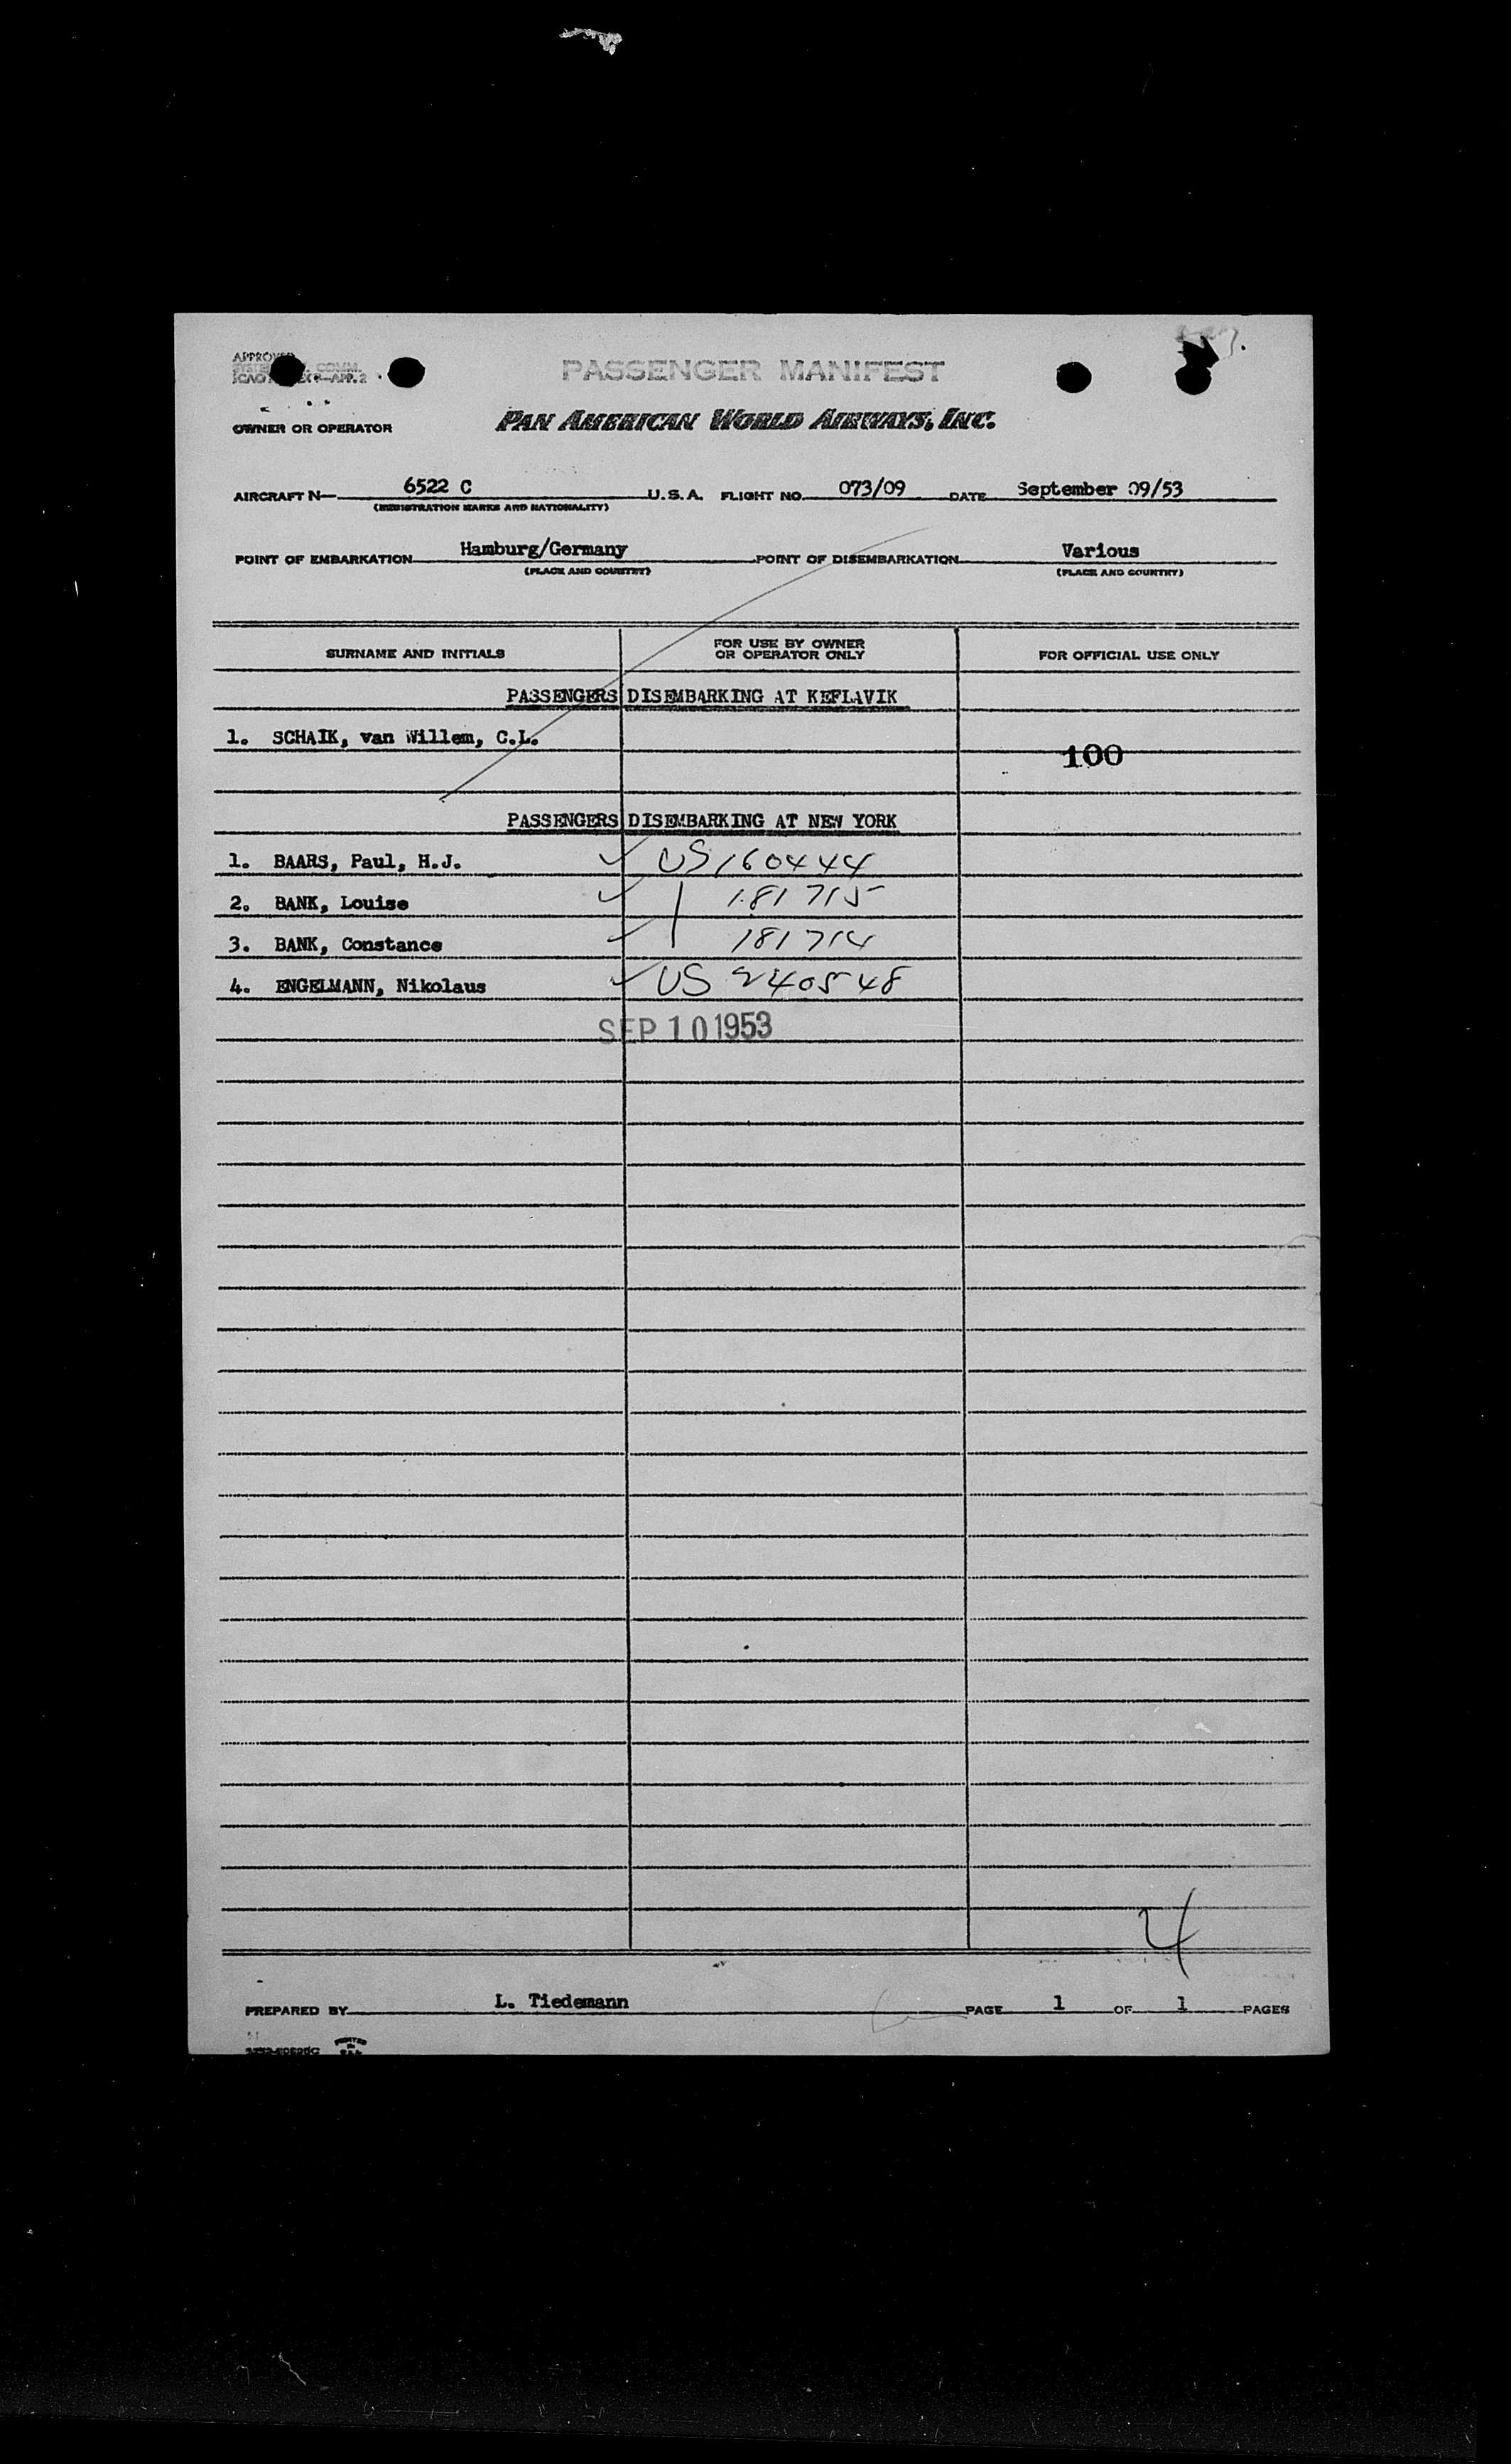 PASSENGER MANIFEST
OWNER OR OPERATOR PAN AMERICAN WORLD AIRWAYS, INC.
AIRCRAFT N— 6522 C U.S.A. FLIGHT NO. 073/09 DATE September 09/53
(REGISTRATION MARKS AND NATIONALITY)
POINT OF EMBARKATION Hamburg/Germany POINT OF DISEMBARKATION Various
(PLACE AND COUNTRY) (PLACE AND COUNTRY)
SURNAME AND INITIALS FOR USE BY OWNER OR OPERATOR ONLY FOR OFFICIAL USE ONLY
PASSENGERS DISEMBARKING AT KEFLAVIK
1. SCHAIK, van Willem, C.L.
100
PASSENGERS DISEMBARKING AT NEW YORK
1. BAARS, Paul, H.J. ✓ US 160444
2. BANK, Louise ✓ 181715
3. BANK, Constance ✓ 181714
4. ENGELMANN, Nikolaus ✓ US 240548
SEP 10 1953
4
PREPARED BY L. Tiedemann PAGE 1 OF 1 PAGES
PRINTED IN U.S.A.